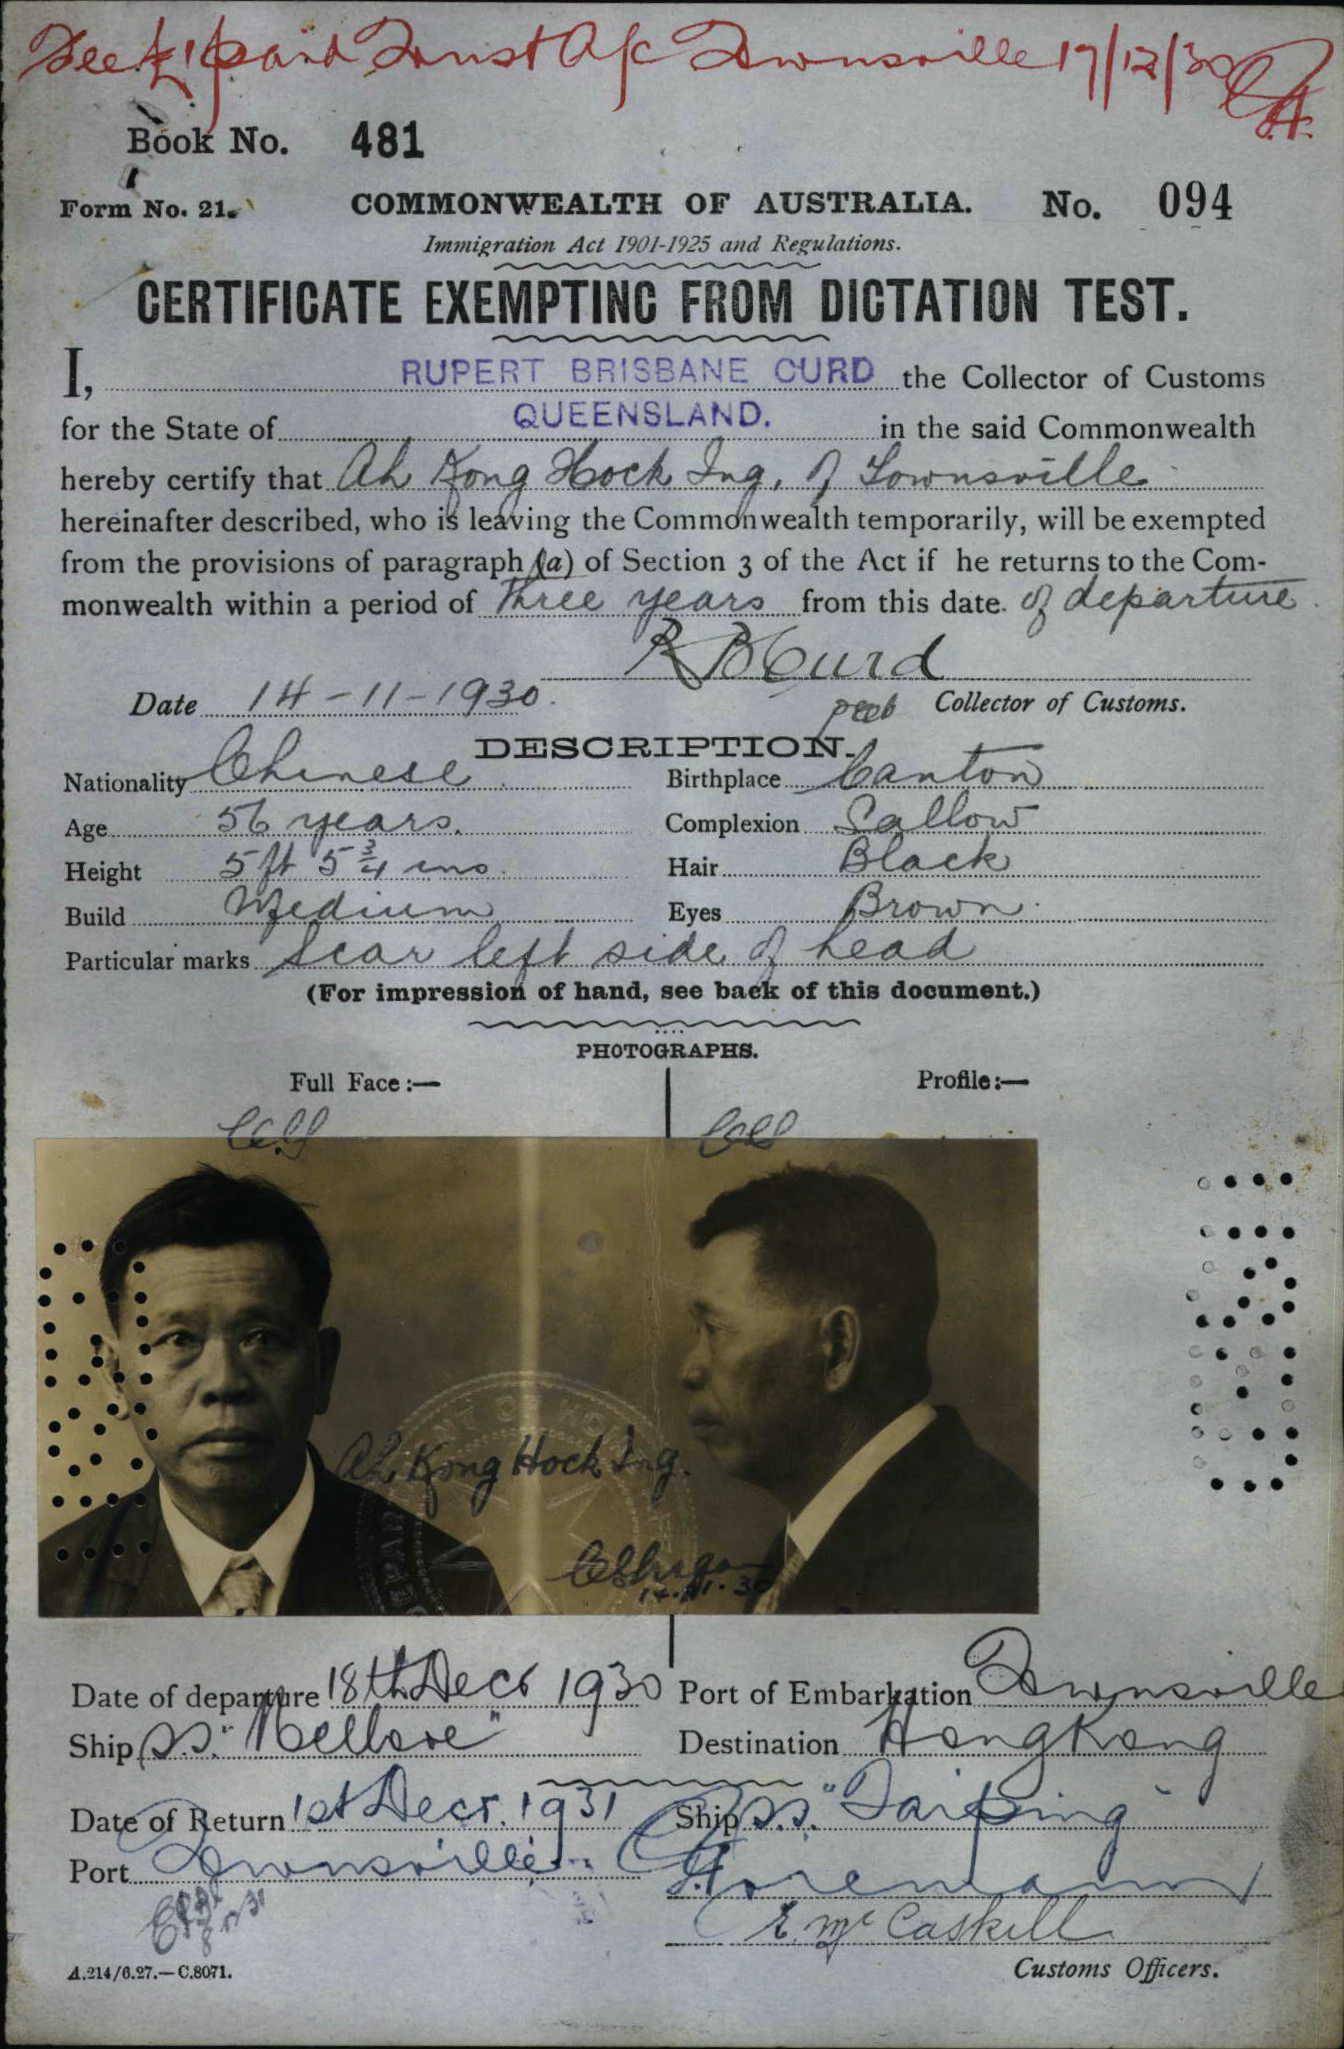 Fee £1 paid Trust A/c Townsville 17/12/30
Book No. 481
Form No. 21. COMMONWEALTH OF AUSTRALIA. No. 094
Immigration Act 1901-1925 and Regulations.
CERTIFICATE EXEMPTING FROM DICTATION TEST.
I, RUPERT BRISBANE CURD the Collector of Customs
for the State of QUEENSLAND. in the said Commonwealth
hereby certify that Ah Kong Hock Ing, of Townsville
hereinafter described, who is leaving the Commonwealth temporarily, will be exempted
from the provisions of paragraph (a) of Section 3 of the Act if he returns to the Com-
monwealth within a period of Three years from this date. of departure
R B Curd
Date 14-11-1930. Collector of Customs.
DESCRIPTION.
Nationality Chinese Birthplace Canton
Age 56 years. Complexion Sallow
Height 5 ft 5 3/4 ins. Hair Black
Build Medium Eyes Brown.
Particular marks Scar left side of head
(For impression of hand, see back of this document.)
PHOTOGRAPHS.
Full Face:— Profile:—
Ah Kong Hock Ing.
14.11.30
Date of departure 18th Decr 1930 Port of Embarkation Townsville
Ship S.S. "Nellore" Destination HongKong
Date of Return 1st Decr. 1931 Ship S.S. "Taiping"
Port Townsville
Foreman
E. McCaskill
A.214/6.27.—C.8071. Customs Officers.